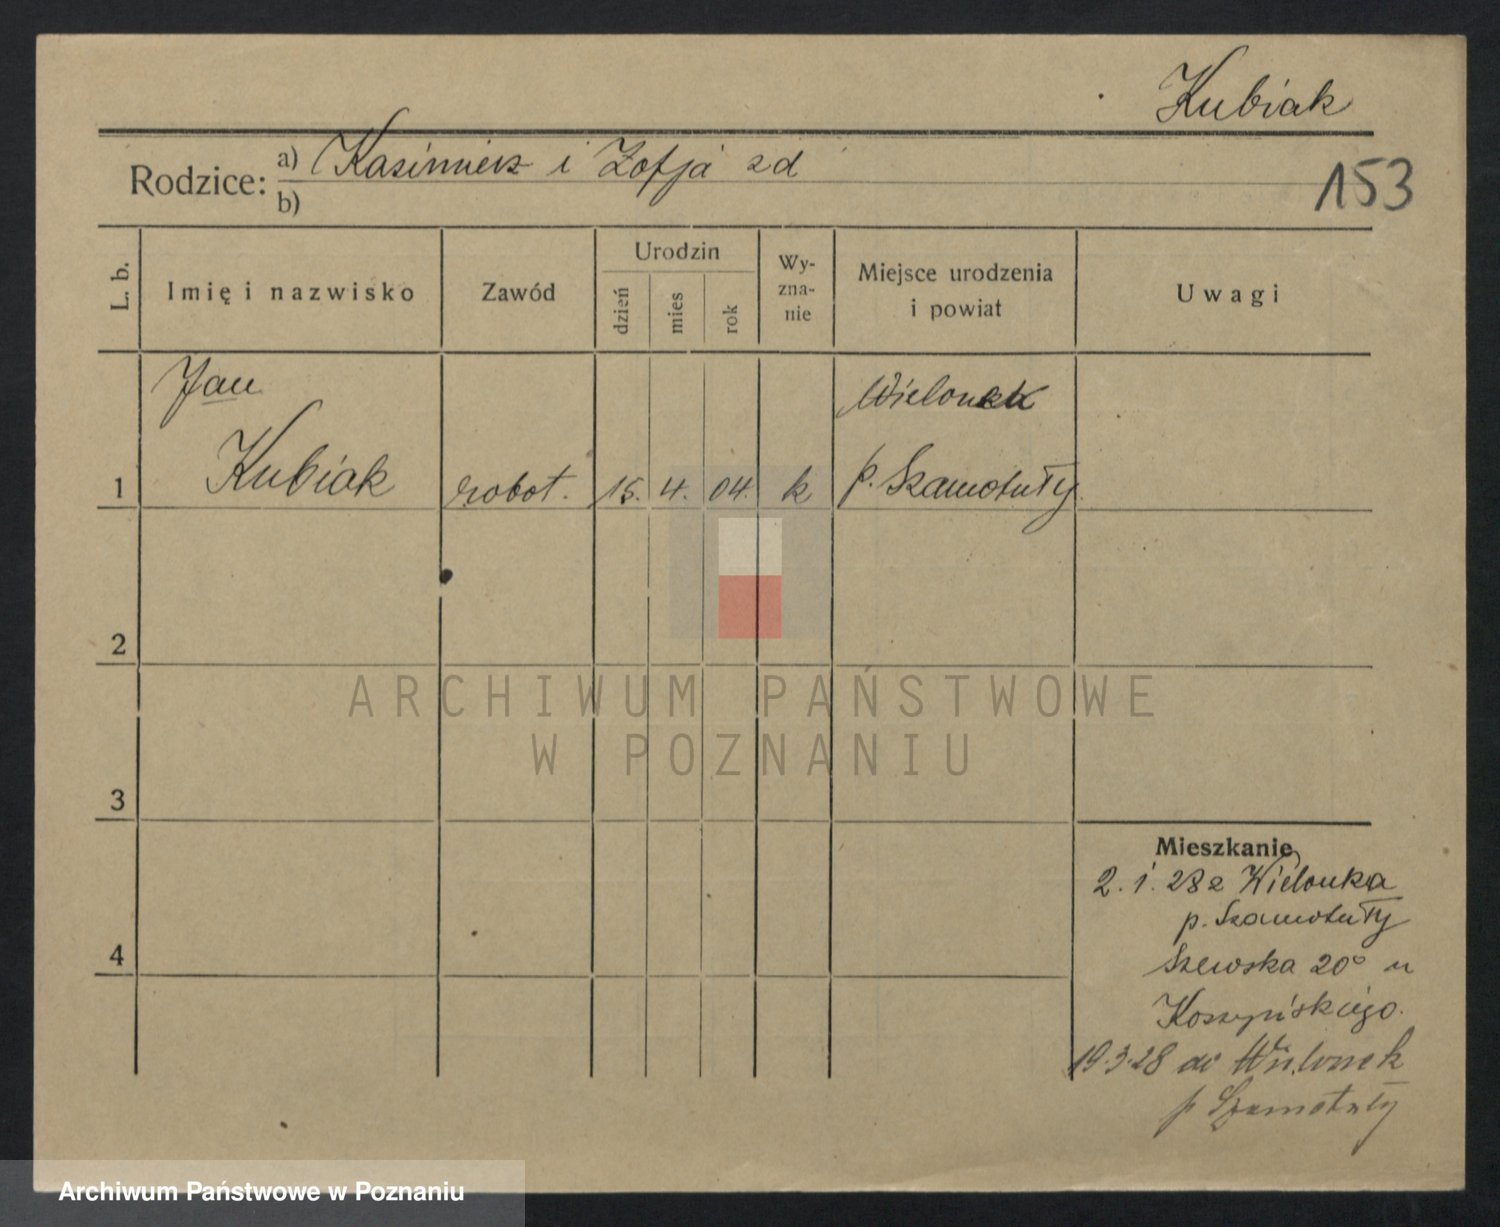 Kubiak
Rodzice: a) Kasimierz i Zofja zd
b)
153
L. b.
Imię i nazwisko
Zawód
Urodzin
dzień
mies
rok
Wy-
zna-
nie
Miejsce urodzenia
i powiat
Uwagi
Jan
Wielonek
1 Kubiak robot. 15. 4. 04. k p. Szamotuły
2
3
4
ARCHIWUM PAŃSTWOWE
W POZNANIU
Mieszkanie
2. 1. 28 z Wielonka
p. Szamotuły
Szewska 20 u
19.3.28 do Wielonek
p Szamotuły
Archiwum Państwowe w Poznaniu